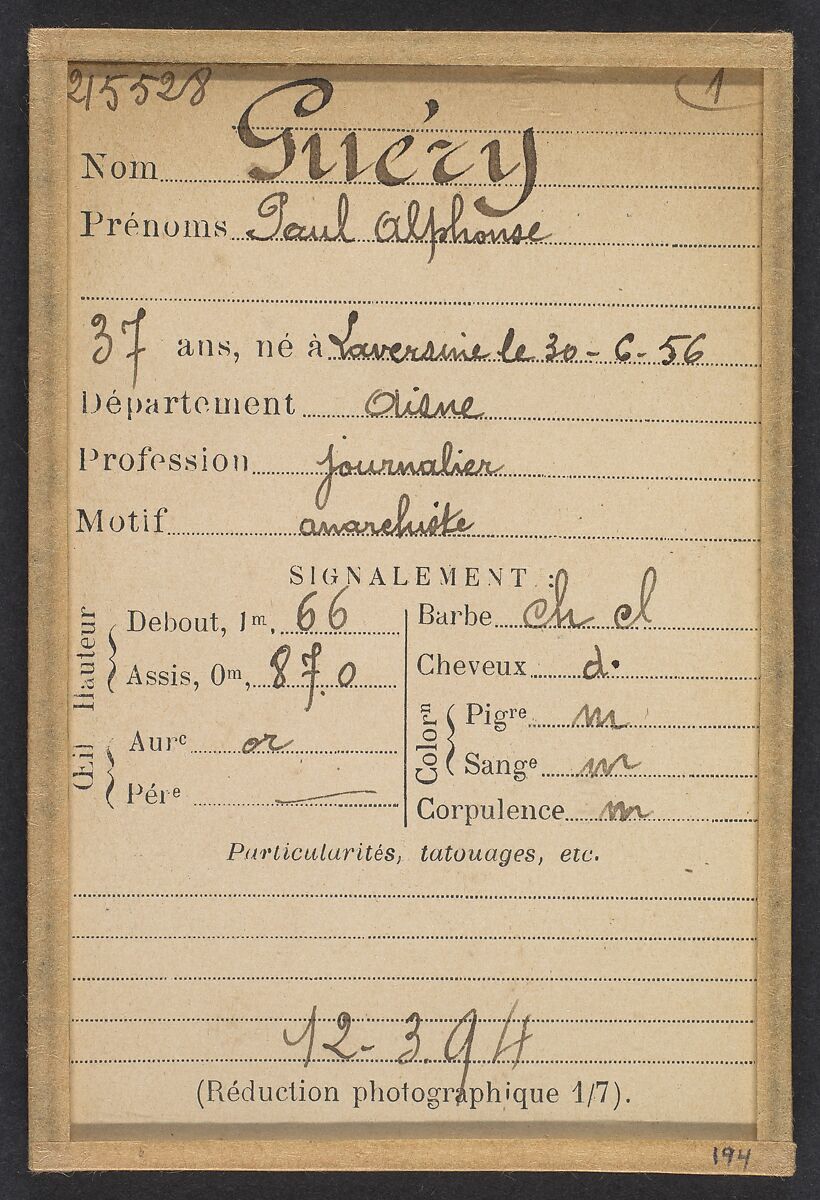 215528 1
Nom Guéry
Prénoms Paul Alphonse
37 ans, né à Laversine le 30-6-56
Département Aisne
Profession journalier
Motif anarchiste
SIGNALEMENT :
Hauteur
Debout, 1m, 66
Assis, 0m, 87.0
Œil
Aurᵉ or
Pérᵉ —
Barbe ch cl
Cheveux d.
Colorⁿ
Pigʳᵉ m
Sangᵉ m
Corpulence m
Particularités, tatouages, etc.
12-3.94
(Réduction photographique 1/7).
194